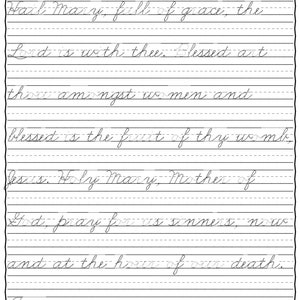 Hail Mary, full of grace, the
Lord is with thee. Blessed art
thou amongst women and
blessed is the fruit of thy womb,
Jesus. Holy Mary, Mother of
God, pray for us sinners, now
and at the hour of our death.